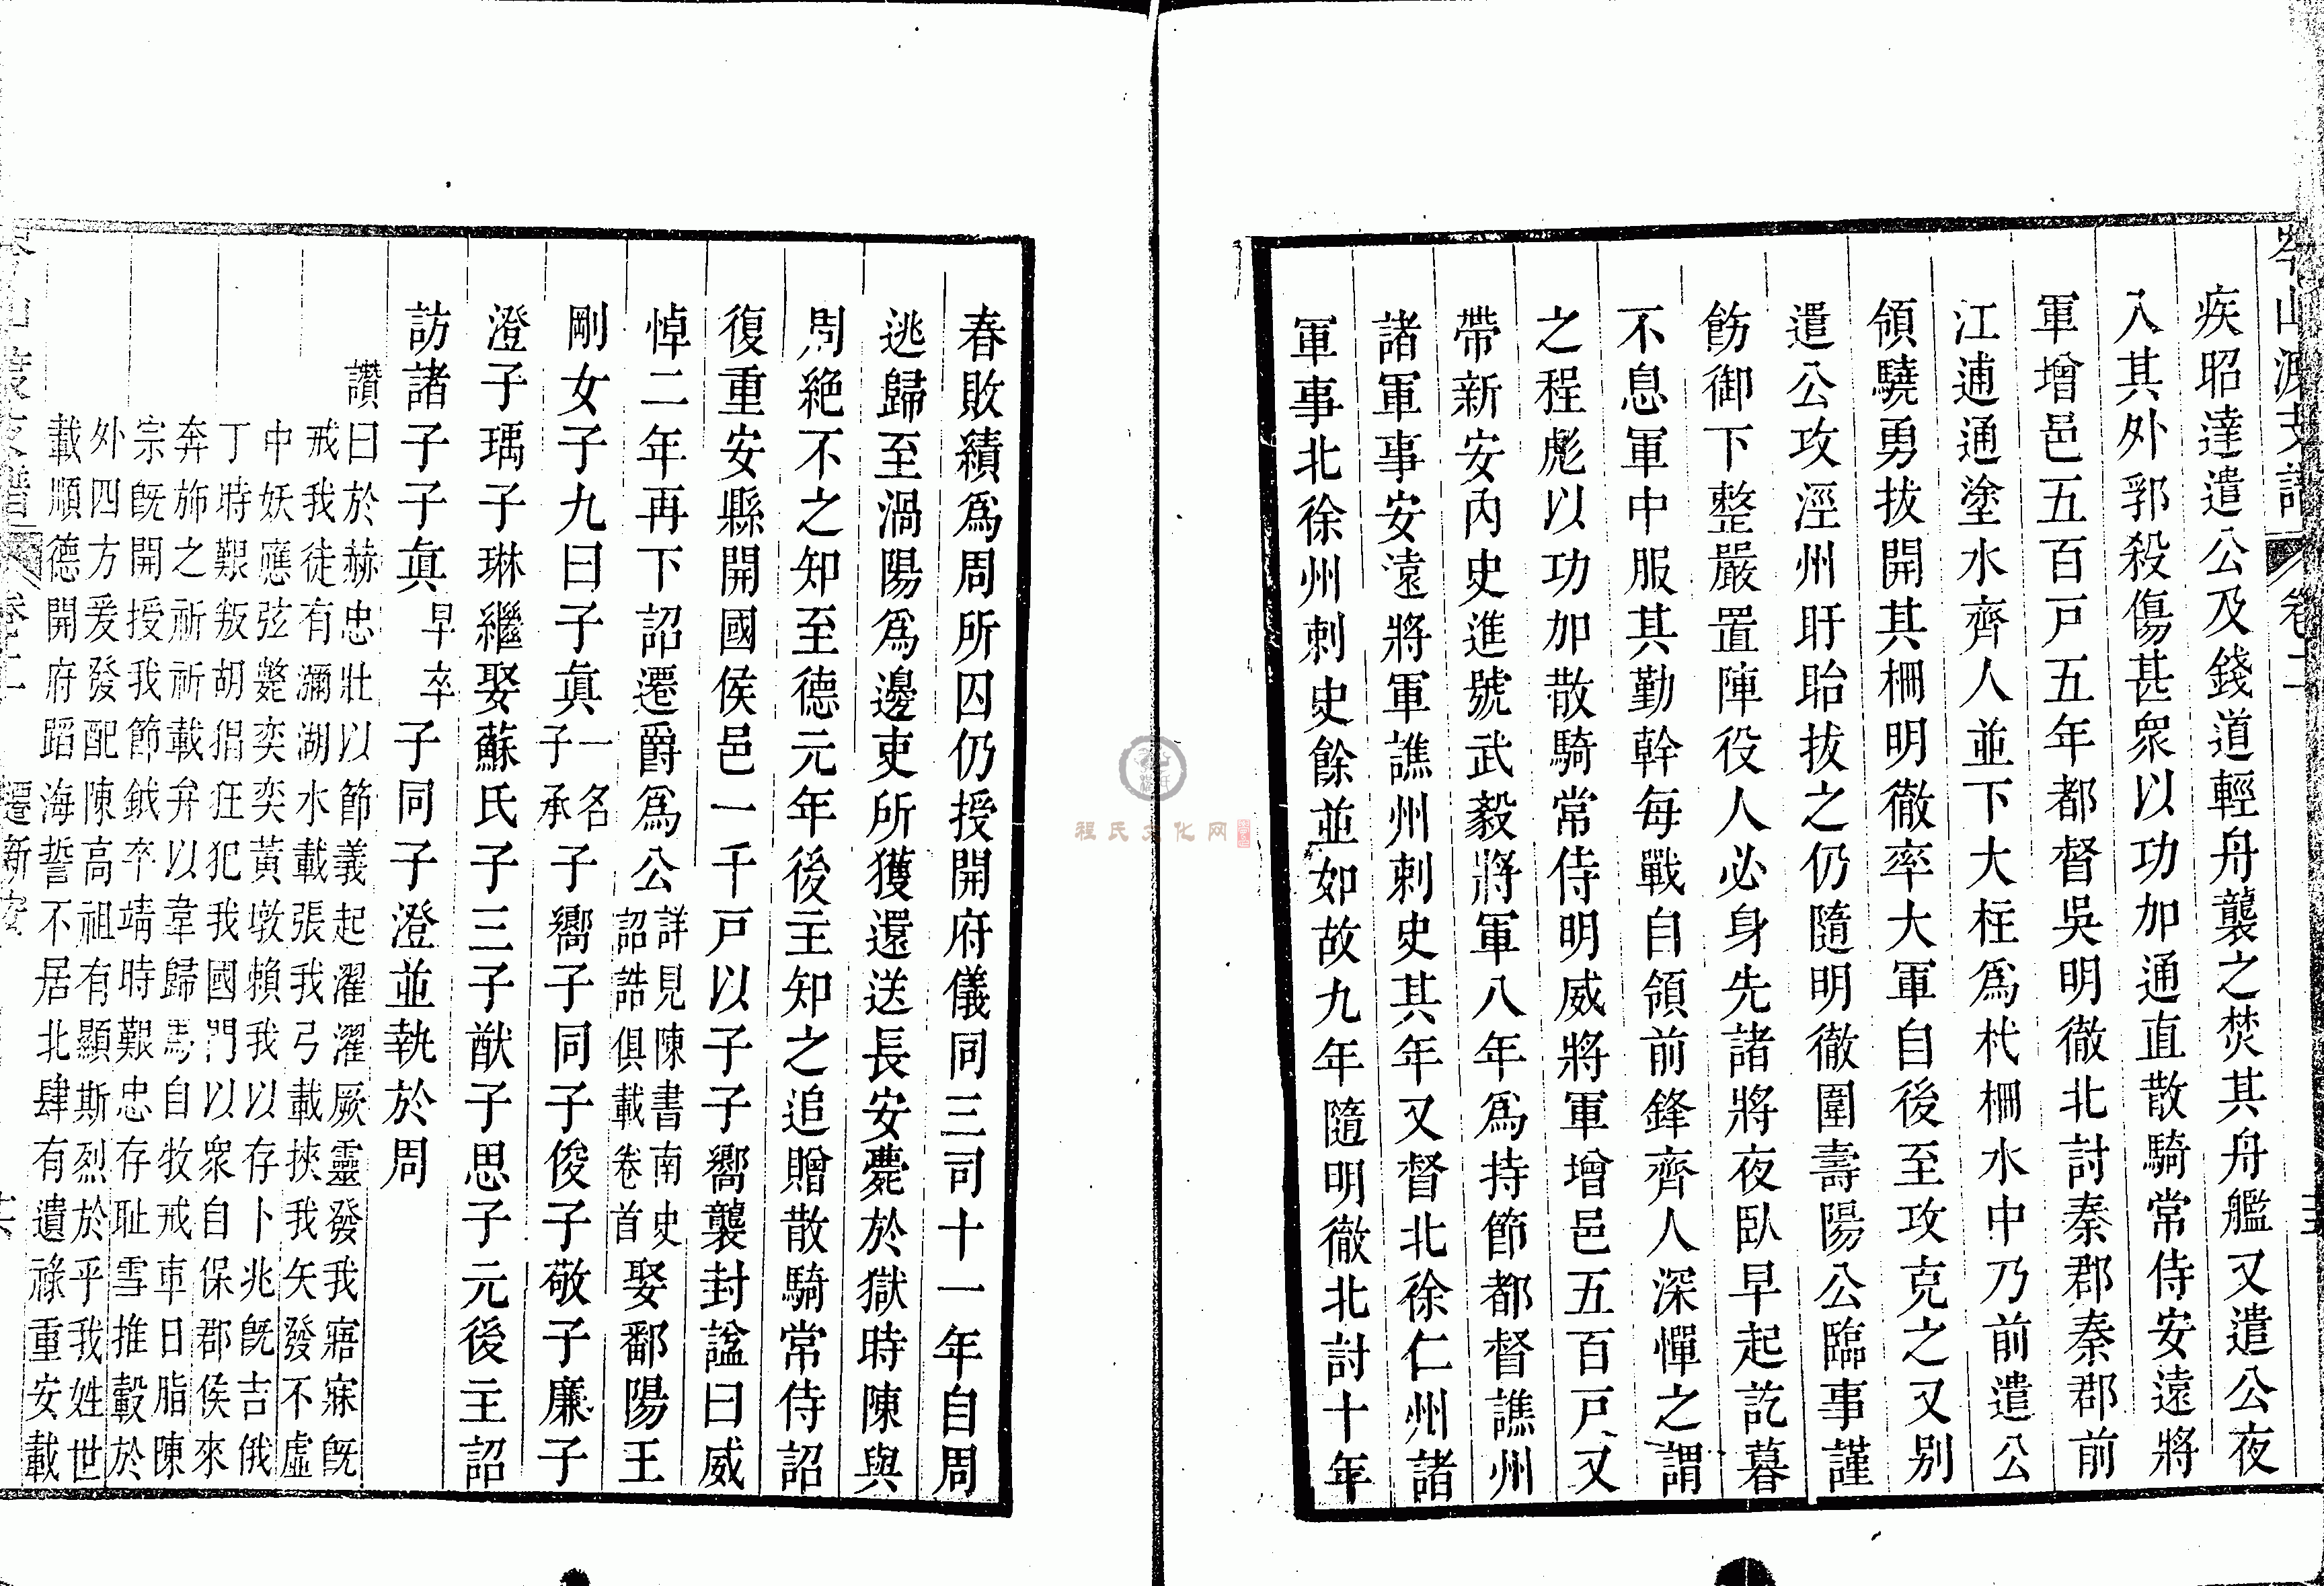 岑山渡支譜 卷二
疾昭達遣公及錢道輕舟襲之焚其舟艦又遣公夜
入其外郛殺傷甚衆以功加通直散騎常侍安遠將
軍增邑五百戸五年都督吳明徹北討秦郡秦郡前
江逋通塗水齊人並下大柱爲杙柵水中乃前遣公
領驍勇拔開其柵明徹率大軍自後至攻克之又别
遣公攻涇州盱眙拔之仍隨明徹圍壽陽公臨事謹
飭御下整嚴置陣役人必身先諸將夜臥早起訖暮
不息軍中服其勤幹每戰自領前鋒齊人深憚之謂
之程彪以功加散騎常侍明威將軍增邑五百戸又
帶新安內史進號武毅將軍八年爲持節都督譙州
諸軍事安遠將軍譙州刺史其年又督北徐仁州諸
軍事北徐州刺史餘並如故九年隨明徹北討十年
春敗績爲周所囚仍授開府儀同三司十一年自周
逃歸至渦陽爲邊吏所獲還送長安薨於獄時陳與
周絶不之知至德元年後主知之追贈散騎常侍詔
復重安縣開國侯邑一千戸以子子嚮襲封謚曰威
悼二年再下詔遷爵爲公詳見陳書南史
詔誥俱載卷首娶鄱陽王
剛女子九曰子眞一名
子承子嚮子同子俊子敬子廉子
澄子瑀子琳繼娶蘇氏子三子猷子思子元後主詔
訪諸子子眞早卒子同子澄並執於周
讚曰於赫忠壯以節義起濯濯厥靈發我寤寐旣
戒我徒有瀰湖水載張我弓載挾我矢發不虛
中妖應弦斃奕奕黃墩賴我以存卜兆旣吉俄
丁時艱叛胡猖狂犯我國門以衆自保郡侯來
奔斾之斾斾載弁以韋歸馬自牧戒車日脂陳
宗旣開授我節鉞卒靖時艱忠存存耻雪推轂於
外四方爰發配陳高祖有顯斯烈於乎我姓世
載順德開府蹈海誓不居北肆有遺祿重安載